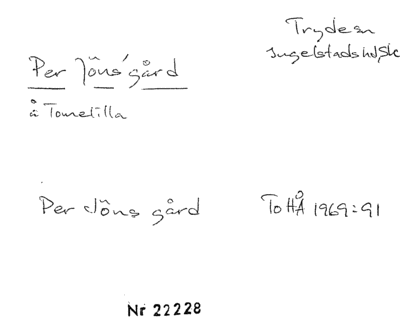 Trydesn
Ingelstads hd, Sk
Per Jöns' gård
å Tomelilla
Per Jöns gård
ToHÅ 1969:91
Nr 22228